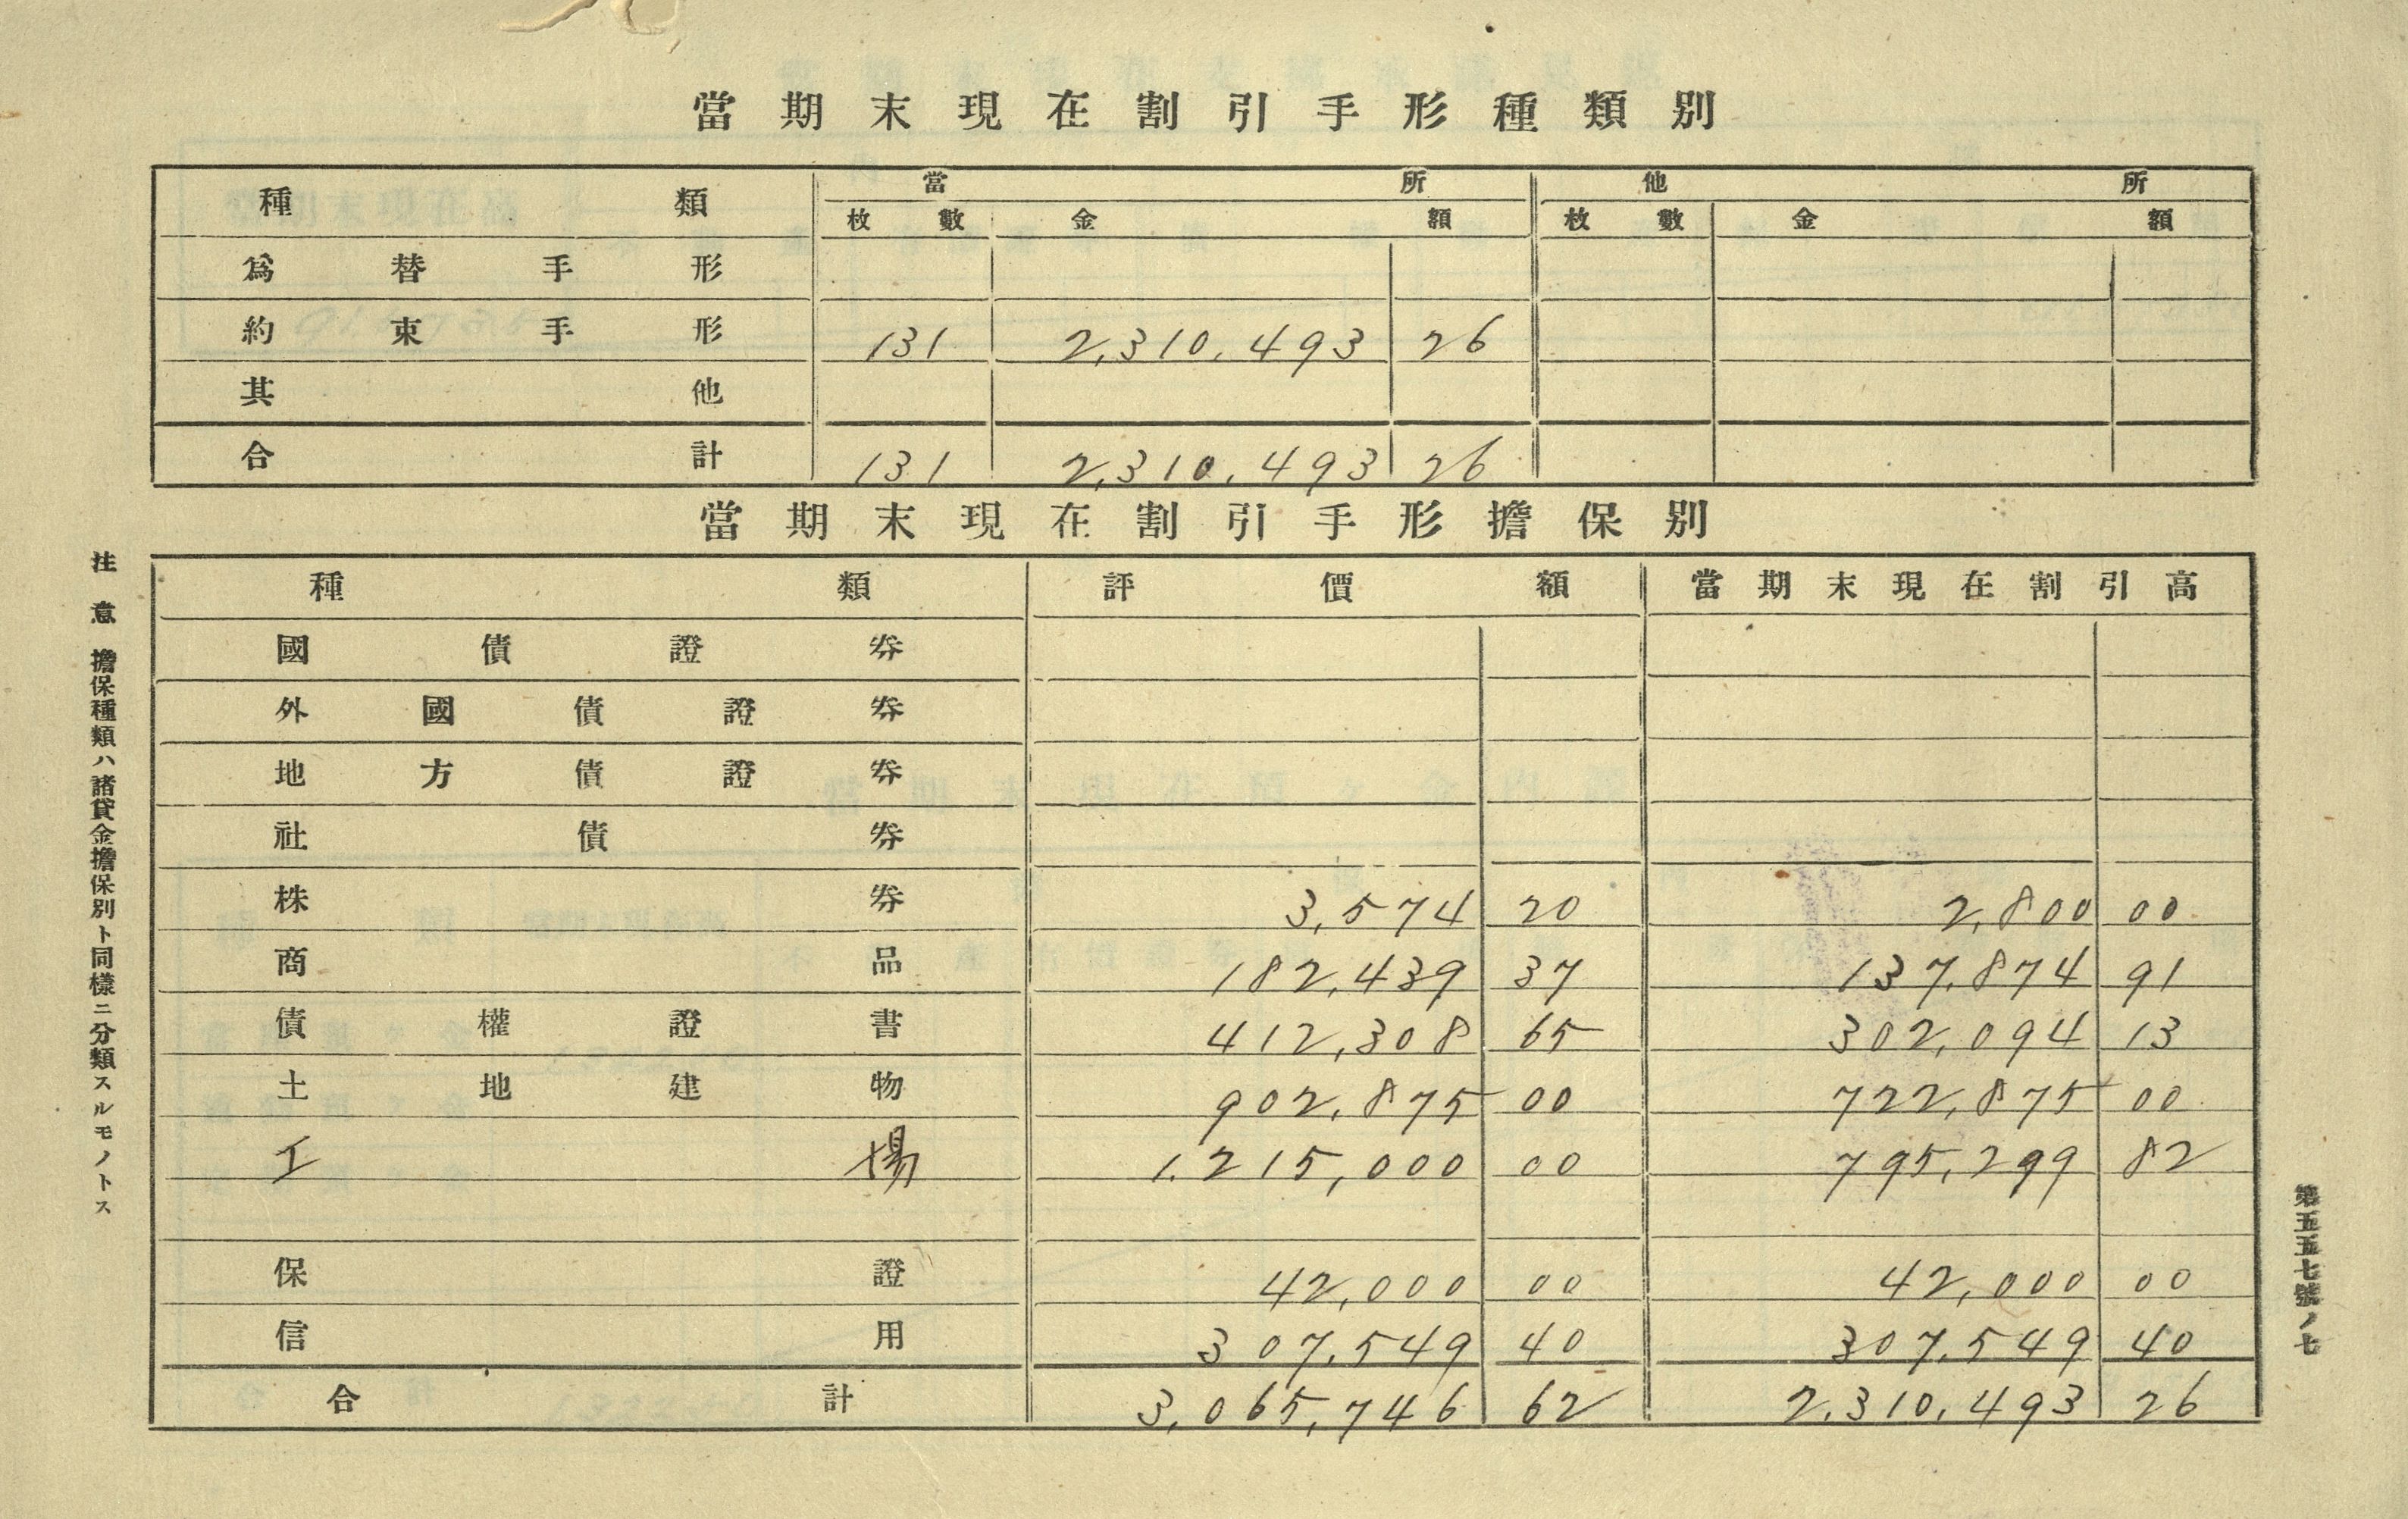 當期末現在割引手形種類別
種類 當所 他所
枚數 金額 枚數 金額
爲替手形
約束手形 131 2,310,493 26
其他
合計 131 2,310,493 26
當期末現在割引手形擔保別
種類 評價額 當期末現在割引高
國債證券
外國債證券
地方債證券
社債券
株券 3,574 20 2,800 00
商品 182,439 37 137,874 91
債權證書 412,308 65 302,094 13
土地建物 902,875 00 722,875 00
工場 1,215,000 00 795,299 82
保證 42,000 00 42,000 00
信用 307,549 40 307,549 40
合計 3,065,746 62 2,310,493 26
注意 擔保種類ハ諸貸金擔保別ト同樣ニ分類スルモノトス
第五五七號ノ七